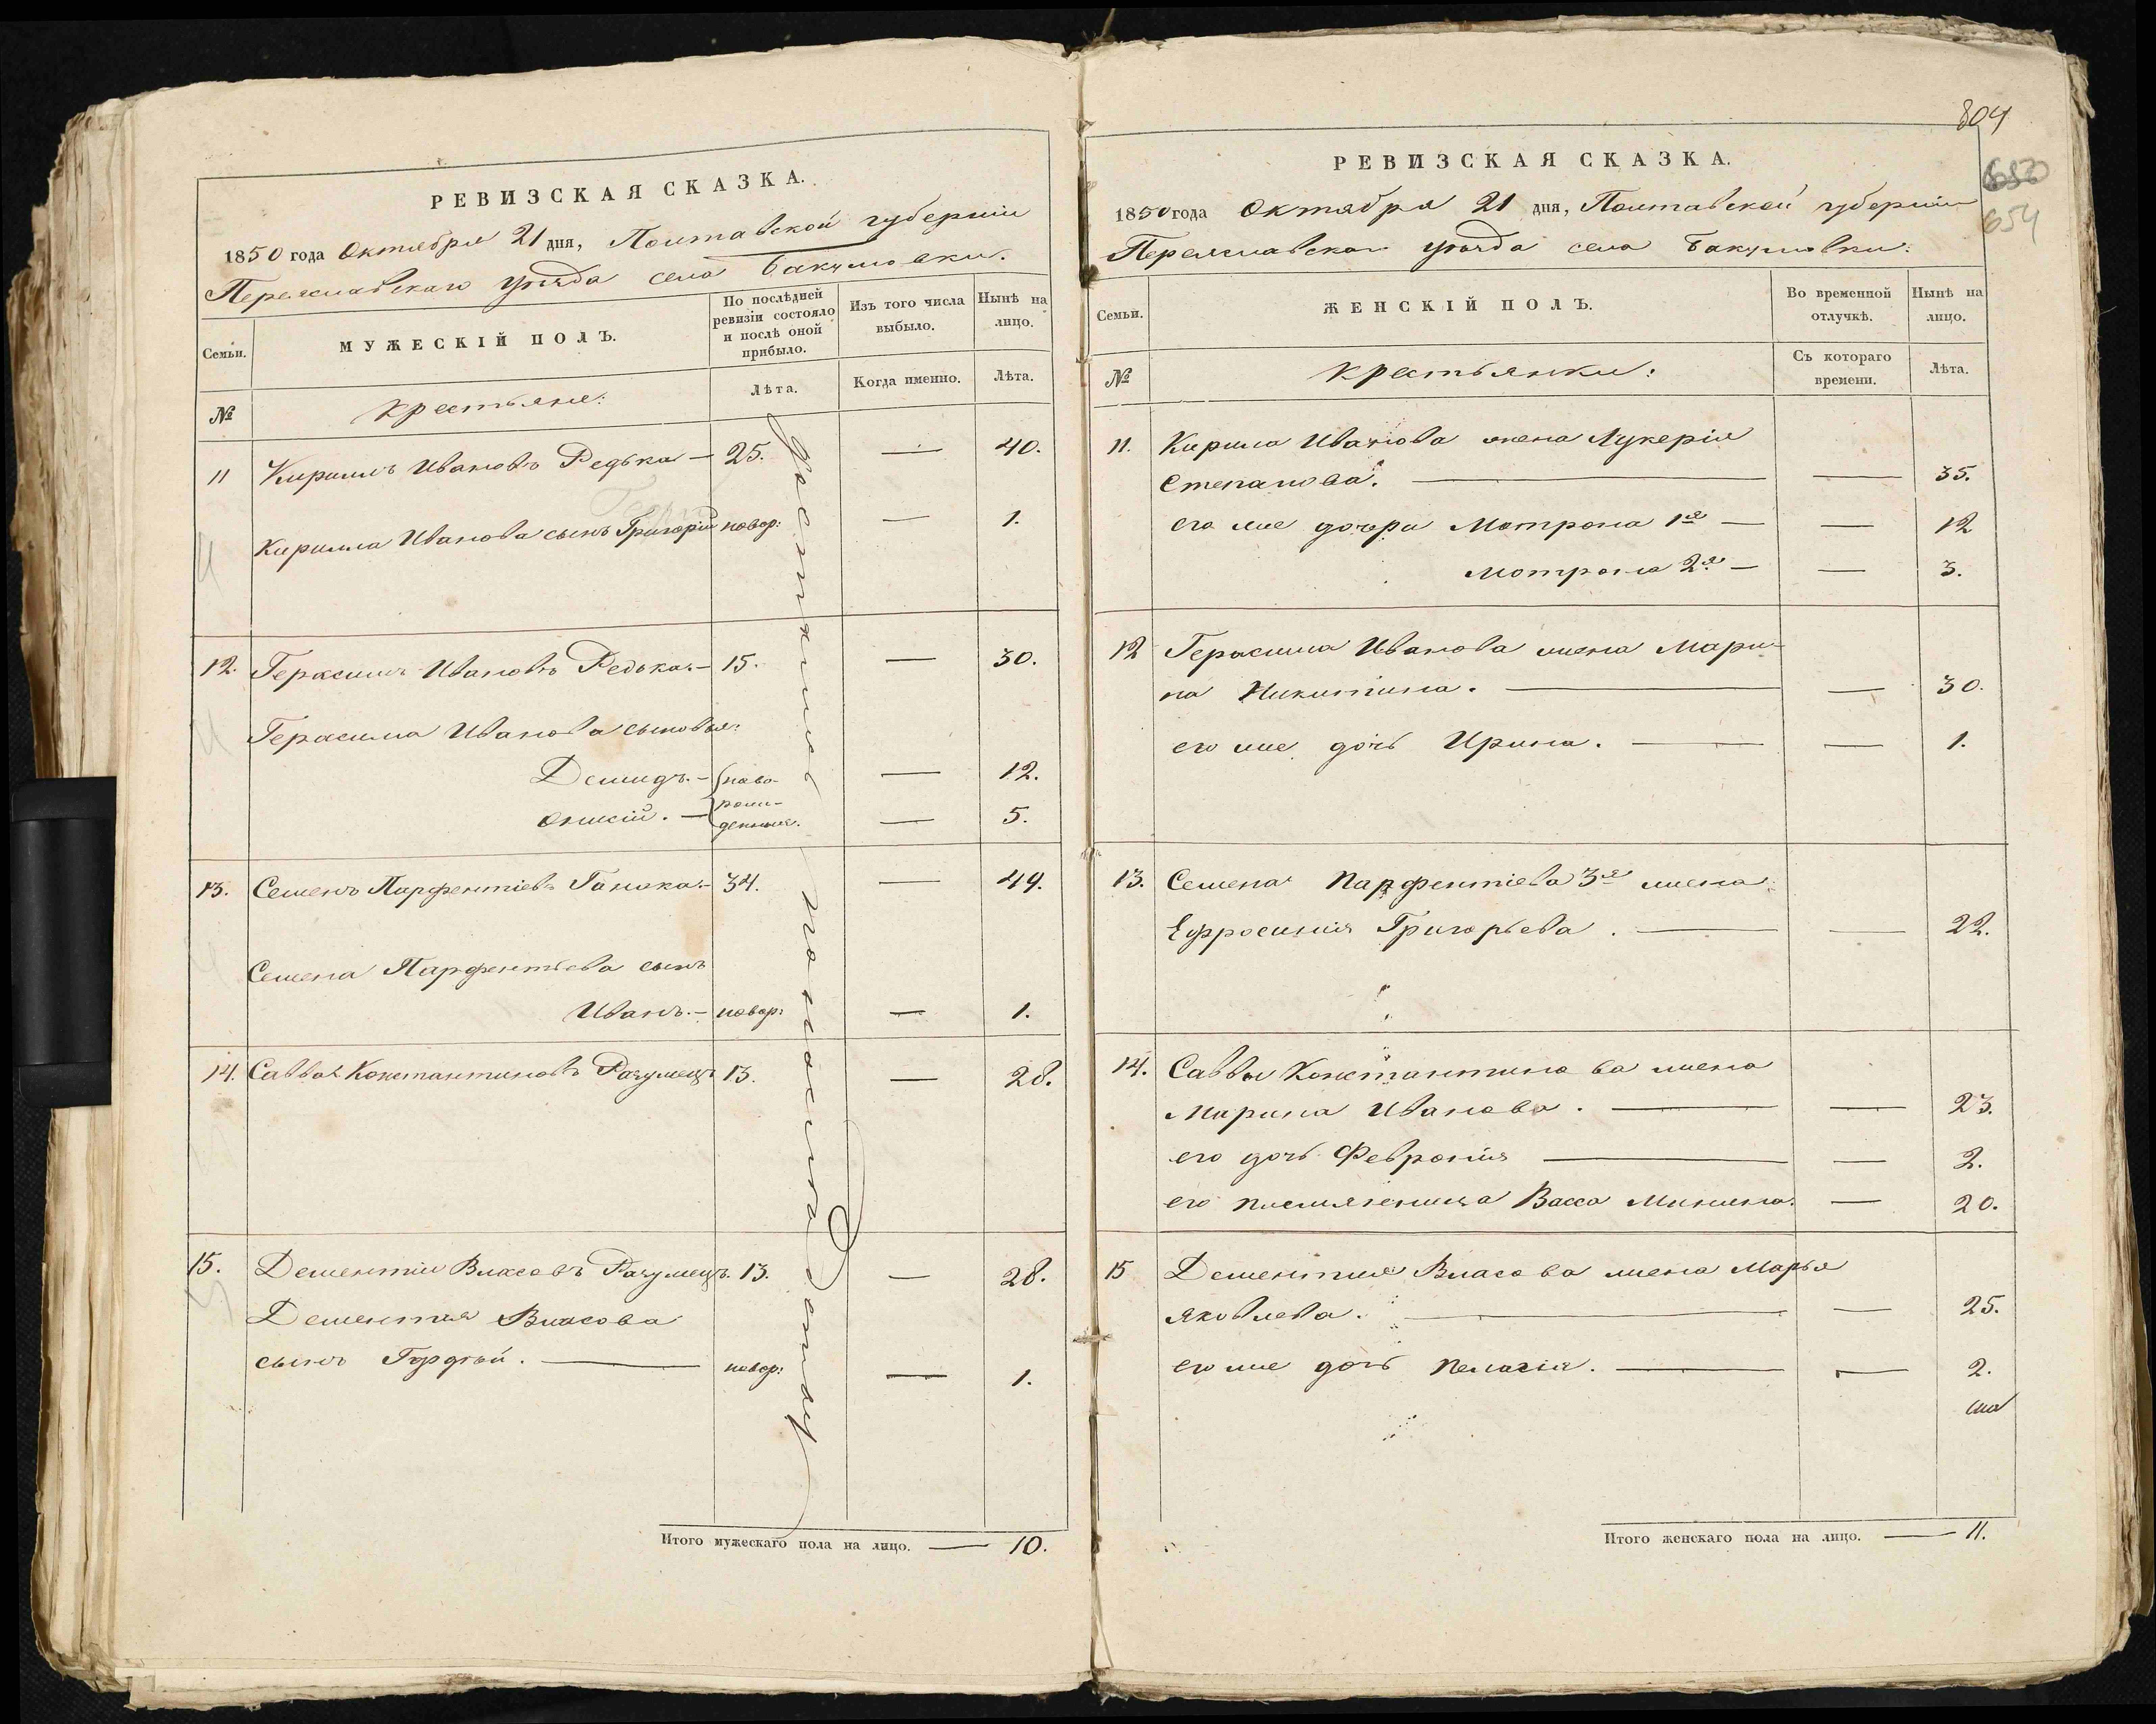 РЕВИЗСКАЯ СКАЗКА.
1850 года Октября 21 дня, Полтавской губерніи
Переяславскаго уѣзда села Бакумовки.
Семьи.
МУЖЕСКІЙ ПОЛЪ.
По послѣдней ревизіи состояло и послѣ оной прибыло.
Изъ того числа выбыло.
Нынѣ на лицо.
№
крестьяне:
Лѣта.
Когда именно.
Лѣта.
11 Кириллъ Ивановъ Редька — 25. — 40.
Кирилла Иванова сынъ Григорій новор: — 1.
12. Герасимъ Ивановъ Редька. — 15. — 30.
Герасима Иванова сыновья:
Демидъ. — ново- — 12.
рож-
— денные. — 5.
13. Семенъ Парфентіевъ — 34. — 49.
Семена Парфентьева сынъ
Иванъ. — новор: — 1.
14. Савва Константиновъ Разумецъ 13. — 28.
15. Дементій Власовъ Разумецъ. 13. — 28.
Дементия Власова
сынъ Гордѣй. — новор: — 1.
Итого мужескаго пола на лицо. — 10.
804
650
654
РЕВИЗСКАЯ СКАЗКА.
1850 года Октября 21 дня, Полтавской губерніи
Переяславскаго уѣзда села Бакумовки.
Семьи.
ЖЕНСКІЙ ПОЛЪ.
Во временной отлучкѣ.
Нынѣ на лицо.
№
крестьянки:
Съ котораго времени.
Лѣта.
11. Кирила Иванова жена Лукерія
Степанова. — — 35.
его же дочери Мотрона 1я — — 12
Мотрона 2я — — 3.
12 Герасима Иванова жена Мари-
на Никитина. — — 30.
его же дочь Ирина. — — 1.
13. Семена Парфентіева 3я жена
Ефросинія Григорьева. — — 22.
14. Саввы Константинова жена
Марина Иванова. — — 23.
его дочь Февронія — — 2.
его племяненица Васса Минина. — 20.
15 Дементия Власова жена Марья
Яковлева. — — 25.
его же дочь Пелагія. — — 2.
Итого женскаго пола на лицо. — 11.